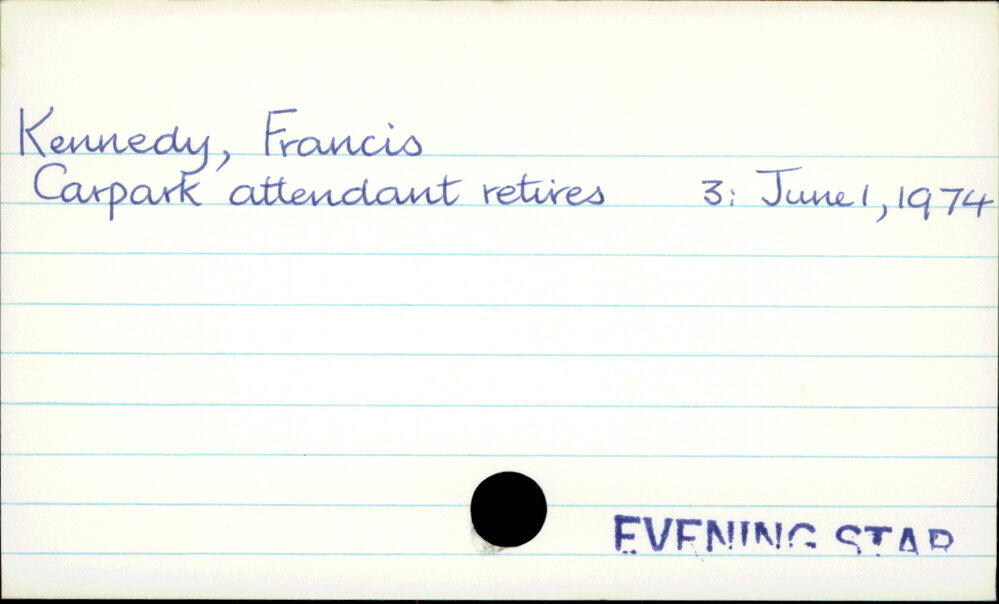 Kennedy, Francis
Carpark attendant retires 3: June 1, 1974
EVENING STAR